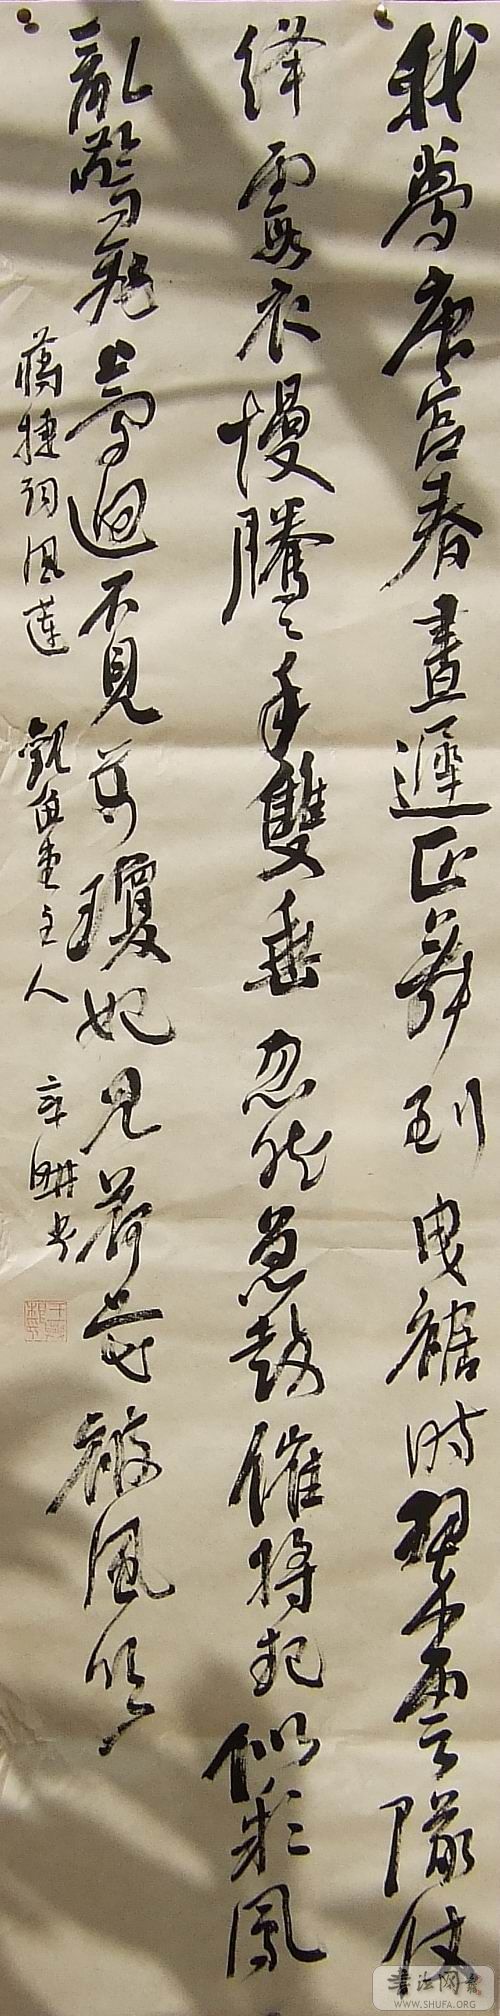 我夢唐宮春晝遲正舞到曳裾时翠雲隊仗
絳霞衣慢騰々手雙垂忽然急鼓催將起似彩鳳
亂驚飛夢迴不見萬瓊妃見荷花被風吹
蔣捷詞風蓮 觀魚堂主人 书
WWW.SHUFA.ORG